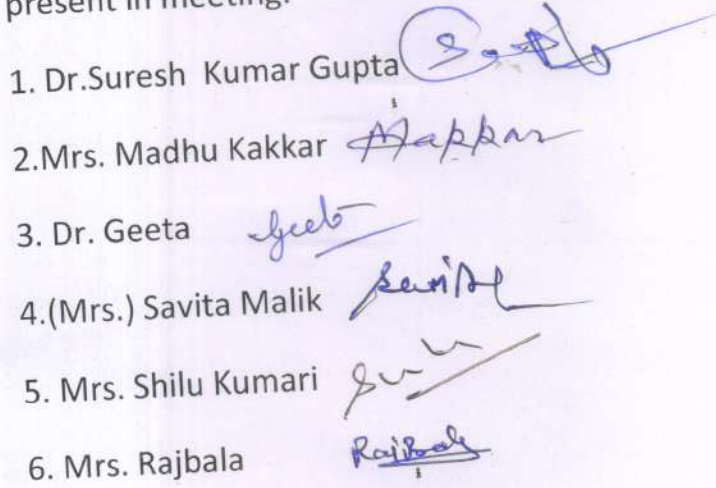 present in meeting.
1. Dr.Suresh Kumar Gupta
2.Mrs. Madhu Kakkar
3. Dr. Geeta Geeta
4.(Mrs.) Savita Malik Savita
5. Mrs. Shilu Kumari
6. Mrs. Rajbala Rajbala